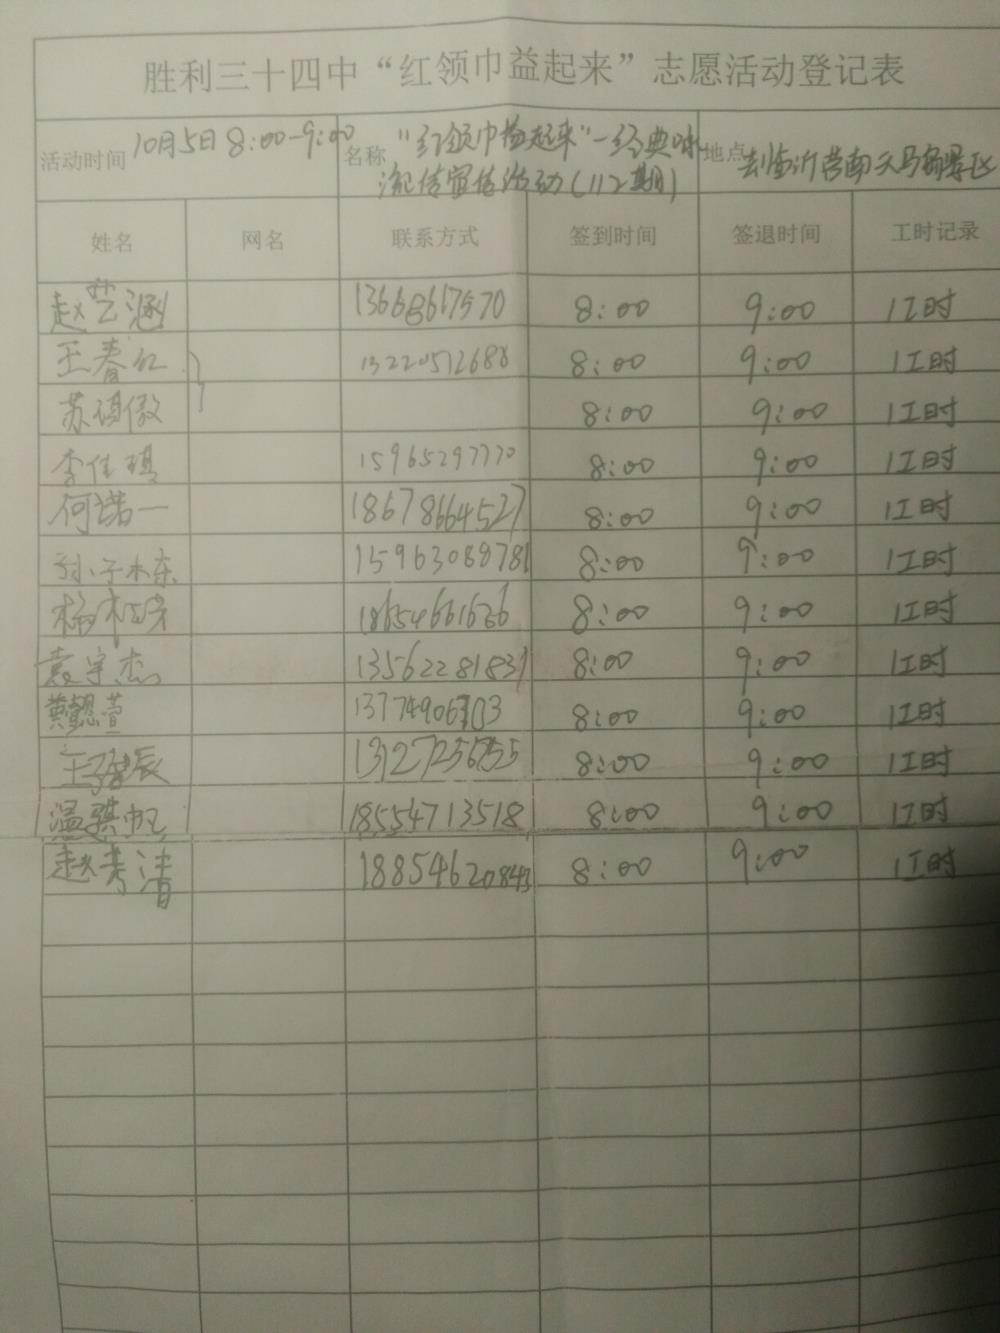 胜利三十四中“红领巾益起来”志愿活动登记表
活动时间 10月5日 8:00-9:00 名称 “红领巾益起来”-经典咏 地点 去临沂莒南天马岛景区
流传宣传活动(112期)
姓名 网名 联系方式 签到时间 签退时间 工时记录
赵艺涵 13668617570 8:00 9:00 1工时
王春红 13220512688 8:00 9:00 1工时
苏琪傲 8:00 9:00 1工时
李佳琪 15965297770 8:00 9:00 1工时
何诺一 18678664527 8:00 9:00 1工时
孙子木东 15963088781 8:00 9:00 1工时
杨 18654661636 8:00 9:00 1工时
袁宇杰 13562281831 8:00 9:00 1工时
黄懿萱 8:00 9:00 1工时
王 辰 8:00 9:00 1工时
温骐帆 18554713518 8:00 9:00 1工时
赵考清 18854620843 8:00 9:00 1工时